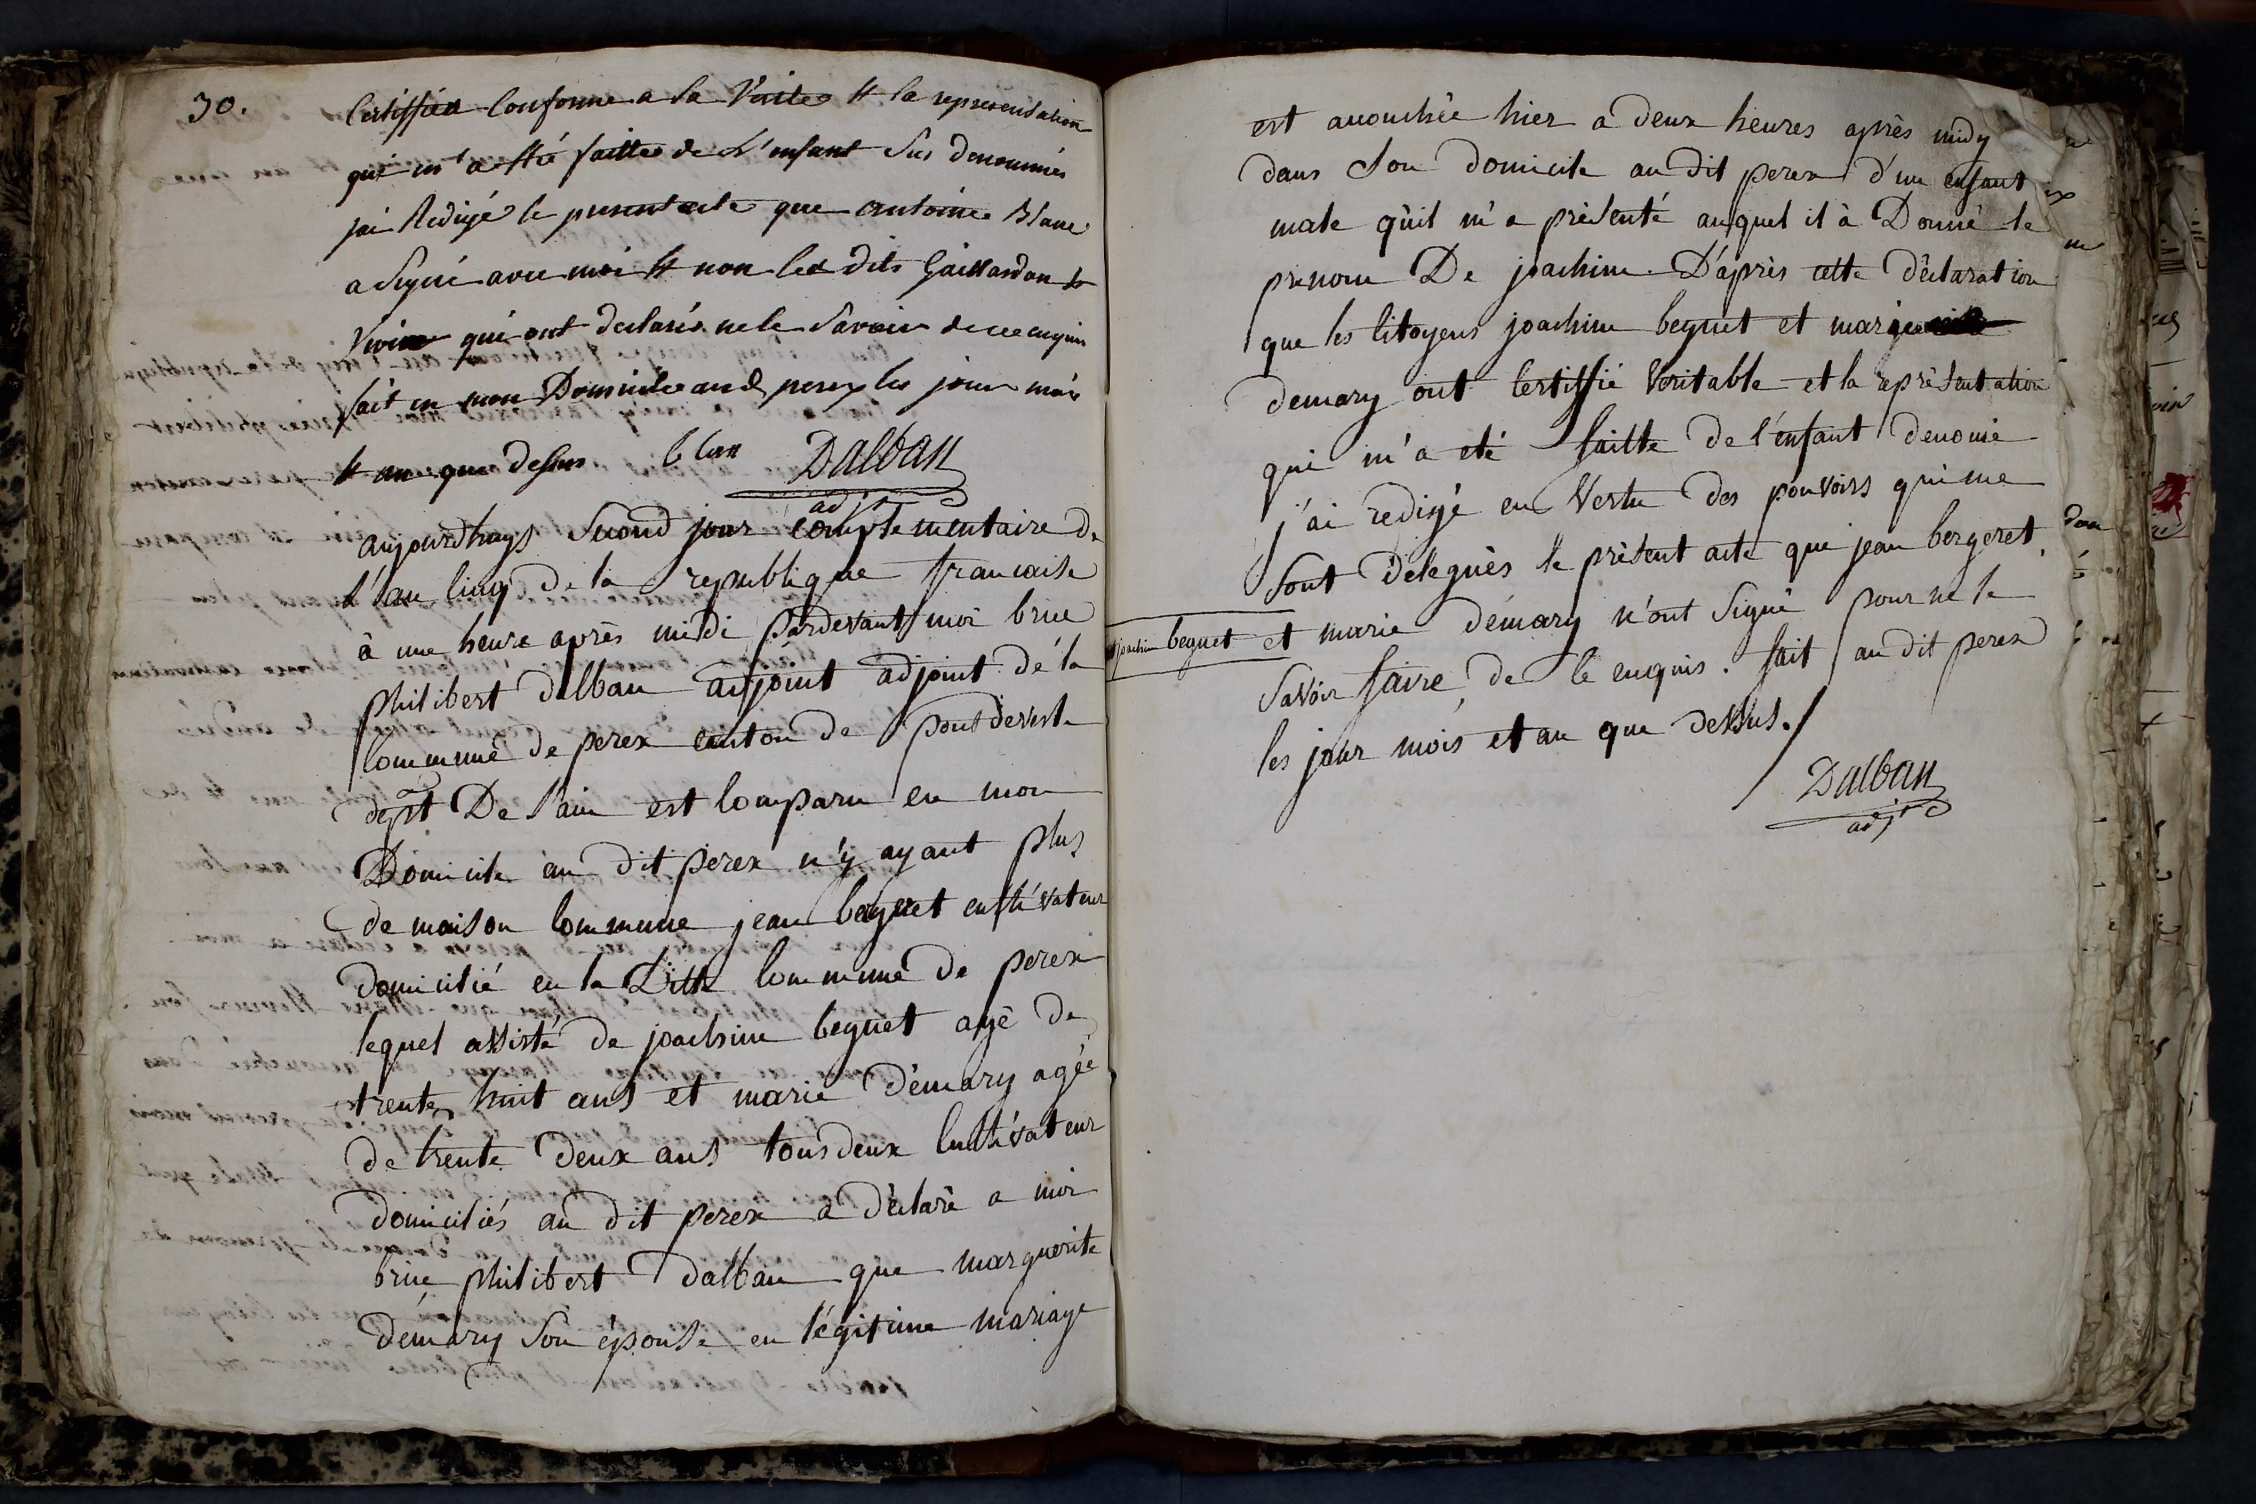 30.
Certiffiée Conforme a la Verité et la representation
qui m'a été faitte de L'enfant Sus denommés
jai Redigé le present acte que antoine Blanc
a Signé avec moi et non les dits Gaillardon et
Vivier qui ont declarés ne le Savoir de ce enquis
fait en mon Domicile aud perex les jour mois
et an que dessus blan DALBAN
adjt
aujourdhuys Second jour complementaire de
L'an cinq de la republique francaise
à une heure après midi pardevant moi brice
philibert dalban adjoint adjoint de la
Commune de perex canton de pont de vesle
dept De l'ain est Comparu en mon
Domicile au dit perex n'y ayant plus
de maison Commune jean beguet cultivateur
domicilié en la Ditte Commune de perex
lequel assisté de joachim beguet agé de
trente huit ans et marie démary agée
de trente deux ans tous deux Cultivateur
domiciliés au dit perex a déclaré a moi
brice philibert dalban que marguerite
démary Son épouse en légitime mariage
est acouchée hier a deux heures après midy
dans Son domicile au dit perex d'un enfant
male qu'il m'a présenté auquel il à Donné le
prénom De joachim. D'après cette déclaration
que les Citoyens joachim beguet et
demary ont Certiffié Veritable et la représentation
qui m'a eté faitte de l'enfant denomé
j'ai redigé en Vertu des pouvoirs qui me
Sont délegués le présent acte que jean bergeret
joachim beguet et marie démary n'ont Signé pour ne le
Savoir faire de Ce enquis. fait au dit perex
les jour mois et an que dessus./
DALBAN
adjt